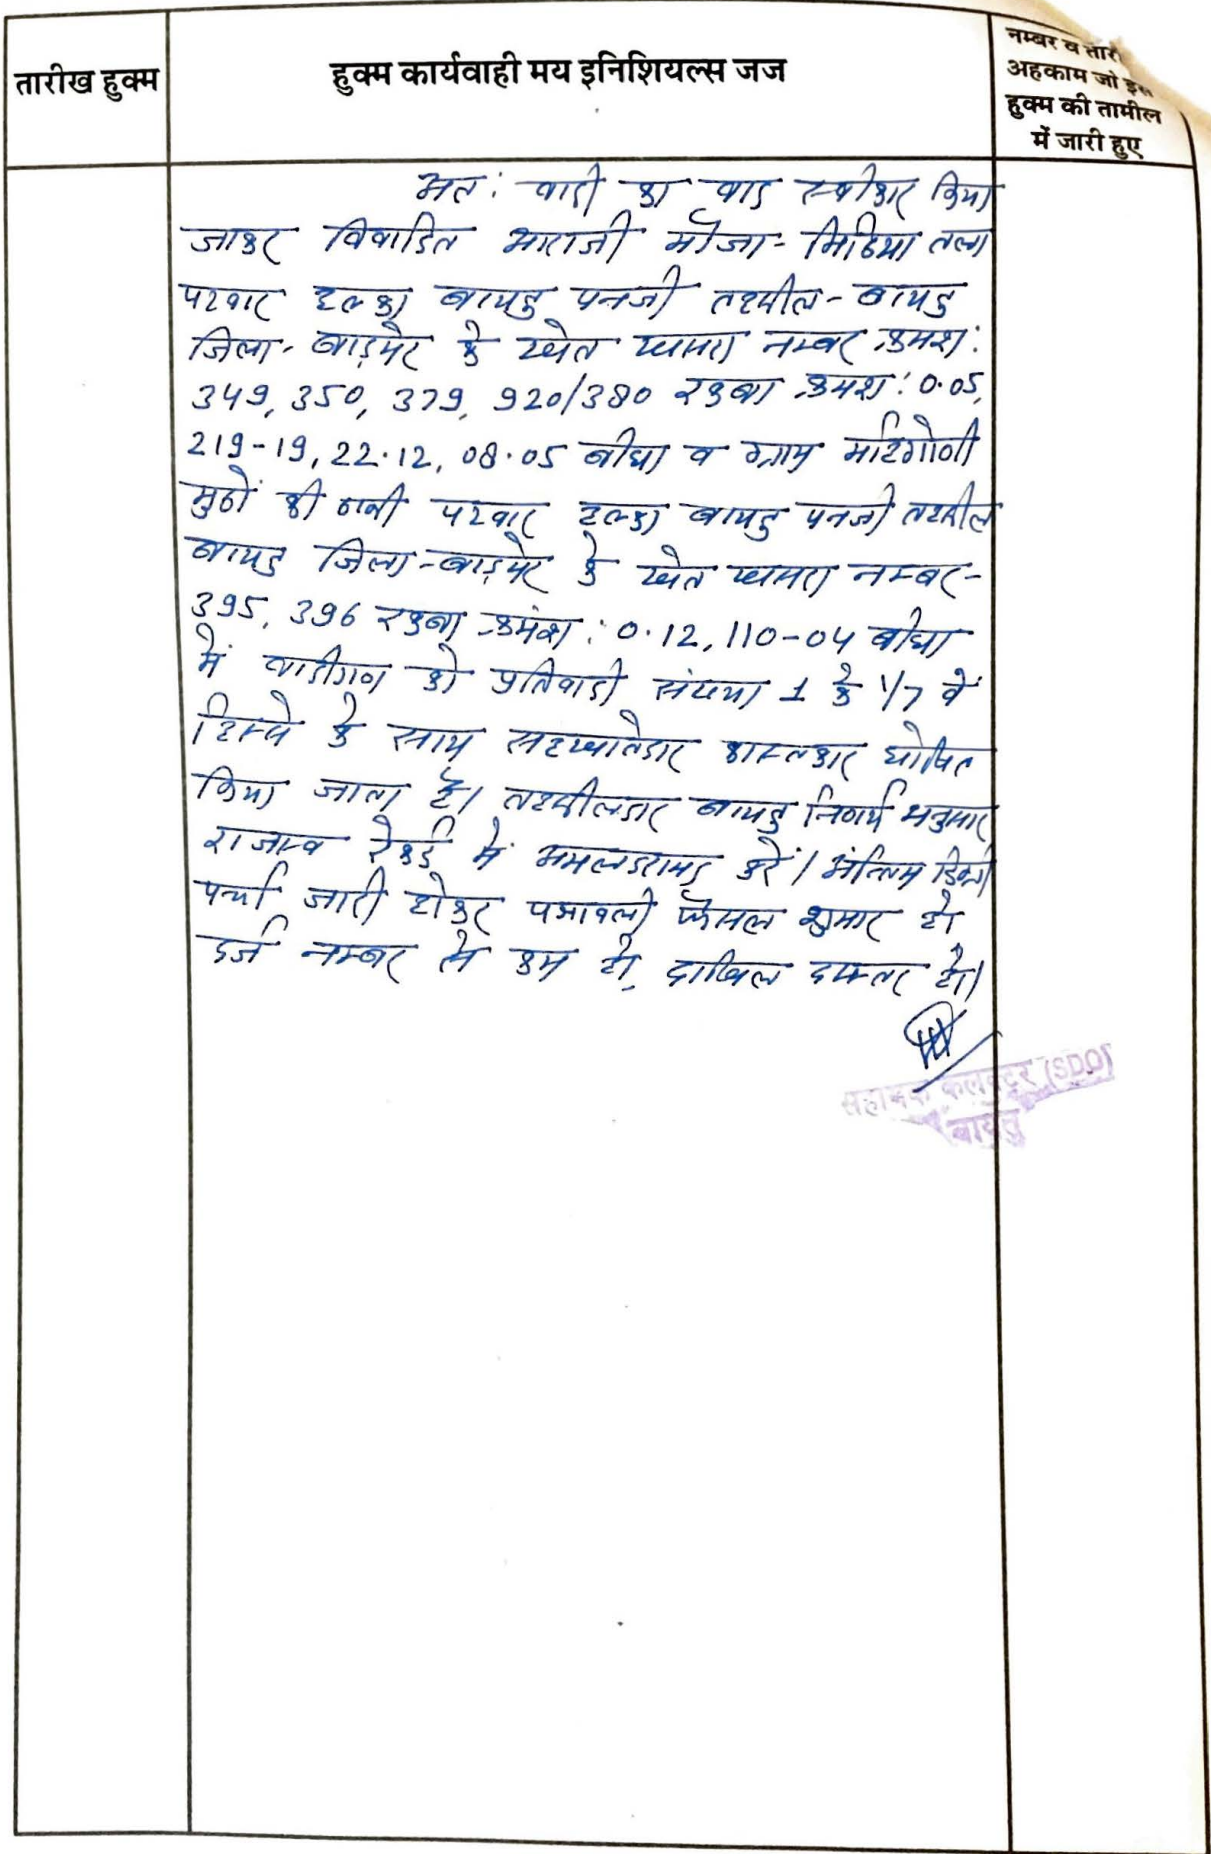 तारीख हुक्म
हुक्म कार्यवाही मय इनिशियल्स जज
नम्बर व तारी
अहकाम जो इस
हुक्म की तामील
में जारी हुए
अतः वादी का वाद स्वीकार किया
जाकर विवादित आराजी मौजा - मिठिया तला
पटवार हल्का बायतु पनजी तहसील - बायतु
जिला - बाड़मेर के खेत खसरा नम्बर क्रमश:
349, 350, 379, 920/380 रकबा क्रमश: 0.05,
219-19, 22.12, 08.05 बीघा व ग्राम
की ढाणी पटवार हल्का बायतु पनजी तहसील
बायतु जिला - बाड़मेर के खेत खसरा नम्बर -
395, 396 रकबा क्रमंश: 0.12, 110-04 बीघा
में वादीगण को प्रतिवादी संख्या 1 के 1/7 वें
हिस्से के साथ सहखातेदार काश्तकार घोषित
किया जाता है। तहसीलदार बायतु निर्णय अनुसार
राजस्व रेकर्ड में अमलदरामद करें। अन्तिम डिक्री
पर्चा जारी होकर पत्रावली फैसल शुमार हो
दर्ज नम्बर से कम हो, दाखिल दफ्तर हो।
सहायक कलक्टर (SDO)
बायतु